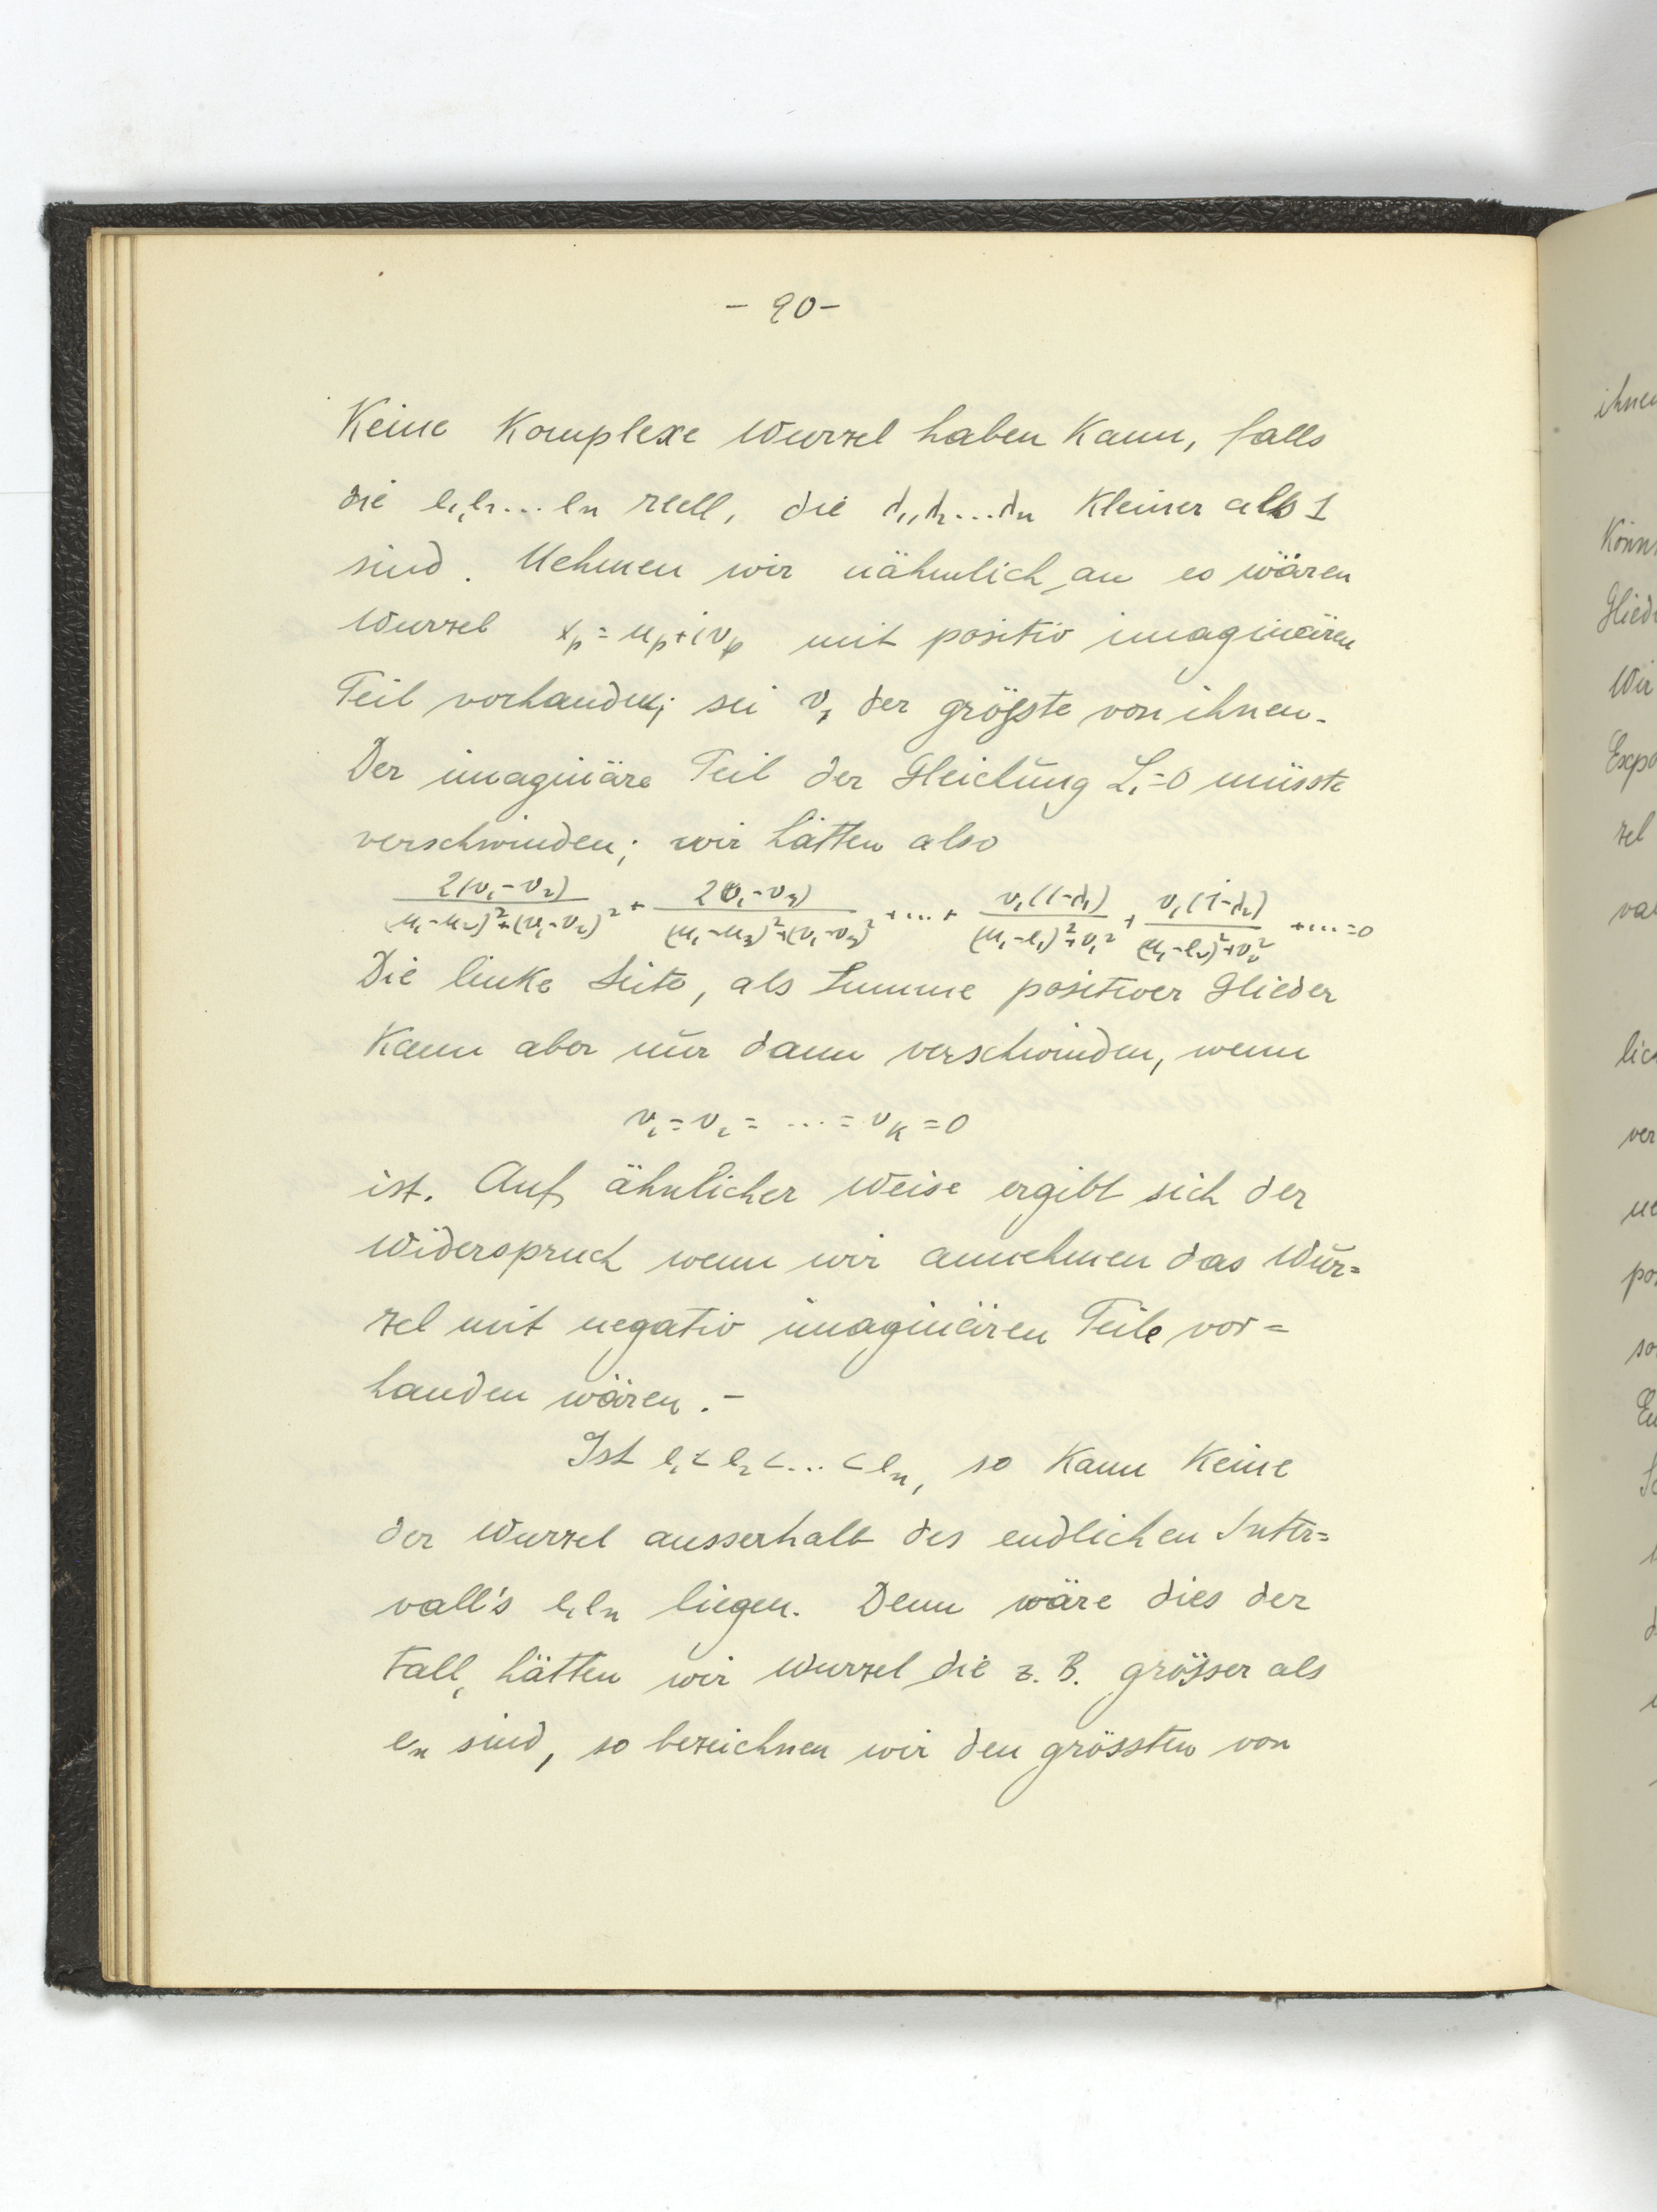 - 90 -
Keine Komplexe Wurzel haben Kann, falls
die l₁, l₂ ... lₙ reell, die d₁, d₂ ... dₙ Kleiner als 1
sind. Nehmen wir nähmlich an es wären
Wurzel xₚ = uₚ + ivₚ mit positiv imaginären
Teil vorhanden; sei v₁ der größte von ihnen.
Der imaginäre Teil der Gleichung L₁ = 0 müsste
verschwinden; wir hätten also
2(v₁-v₂)/((u₁-u₂)²+(v₁-v₂)²) + 2(v₁-v₃)/((u₁-u₃)²+(v₁-v₃)²) + ... + v₁(1-d₁)/((u₁-l₁)²+v₁²) + v₁(1-d₂)/((u₁-l₂)²+v₂²) + ... = 0
Die linke Seite, als Summe positiver Glieder
Kann aber nur dann verschwinden, wenn
v₁ = v₂ = ... = v_K = 0
ist. Auf ähnlicher Weise ergibt sich der
Widerspruch wenn wir annehmen das Wur=
zel mit negativ imaginären Teile vor=
handen wären. -
Ist l₁ < l₂ < ... < lₙ, so Kann Keine
der Wurzel ausserhalb des endlichen Inter=
vall's l₁lₙ liegen. Denn wäre dies der
Fall, hätten wir Wurzel die z. B. grösser als
lₙ sind, so bezeichnen wir den grössten von
ihnen
Glied
Wir
zel